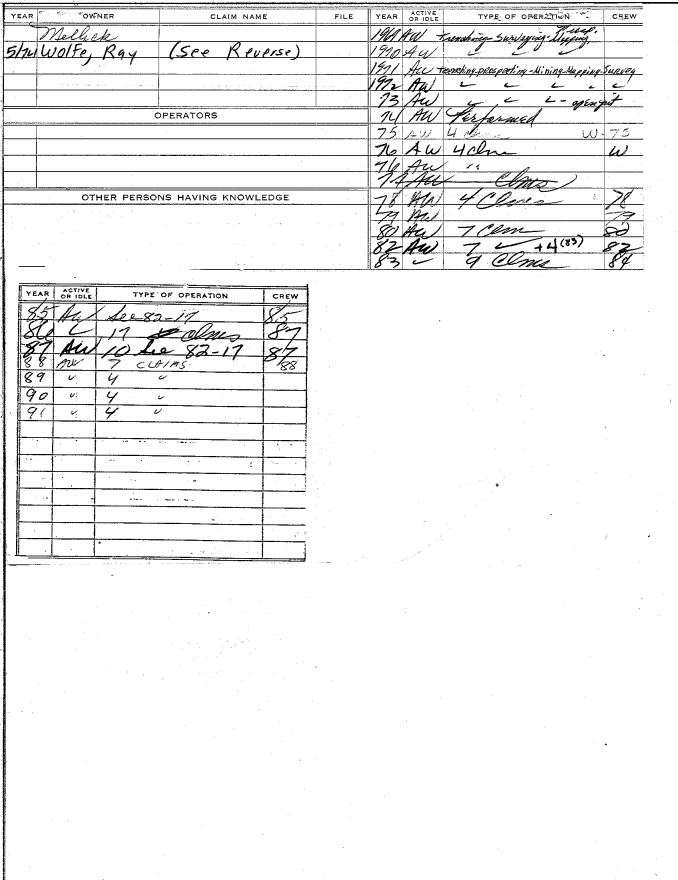 YEAR OWNER CLAIM NAME FILE
Mellick
5/74 Wolfe, Ray (See Reverse)
OPERATORS
OTHER PERSONS HAVING KNOWLEDGE
YEAR ACTIVE OR IDLE TYPE OF OPERATION CREW
1969 AW Trenching-Surveying-Mapping
1970 AW
1971 AW Trenching-prospecting-Mining-Mapping-Survey
1972 AW
73 AW - open pit
74 AW Performed
75 AW 4 W-75
76 AW 4 Clms W
76 AW "
77 AW Clms
78 AW 4 Claims 78
79 AW 79
80 AW 7 Clms 80
82 AW 7 ✓ +4(83) 82
83 ✓ 9 Clms 84
YEAR ACTIVE OR IDLE TYPE OF OPERATION CREW
85 AW See 82-17 85
86 ✓ 17 Clms 87
87 AW 10 See 82-17 87
88 AW 7 CLAIMS 88
89 " 4 "
90 " 4 "
91 " 4 "